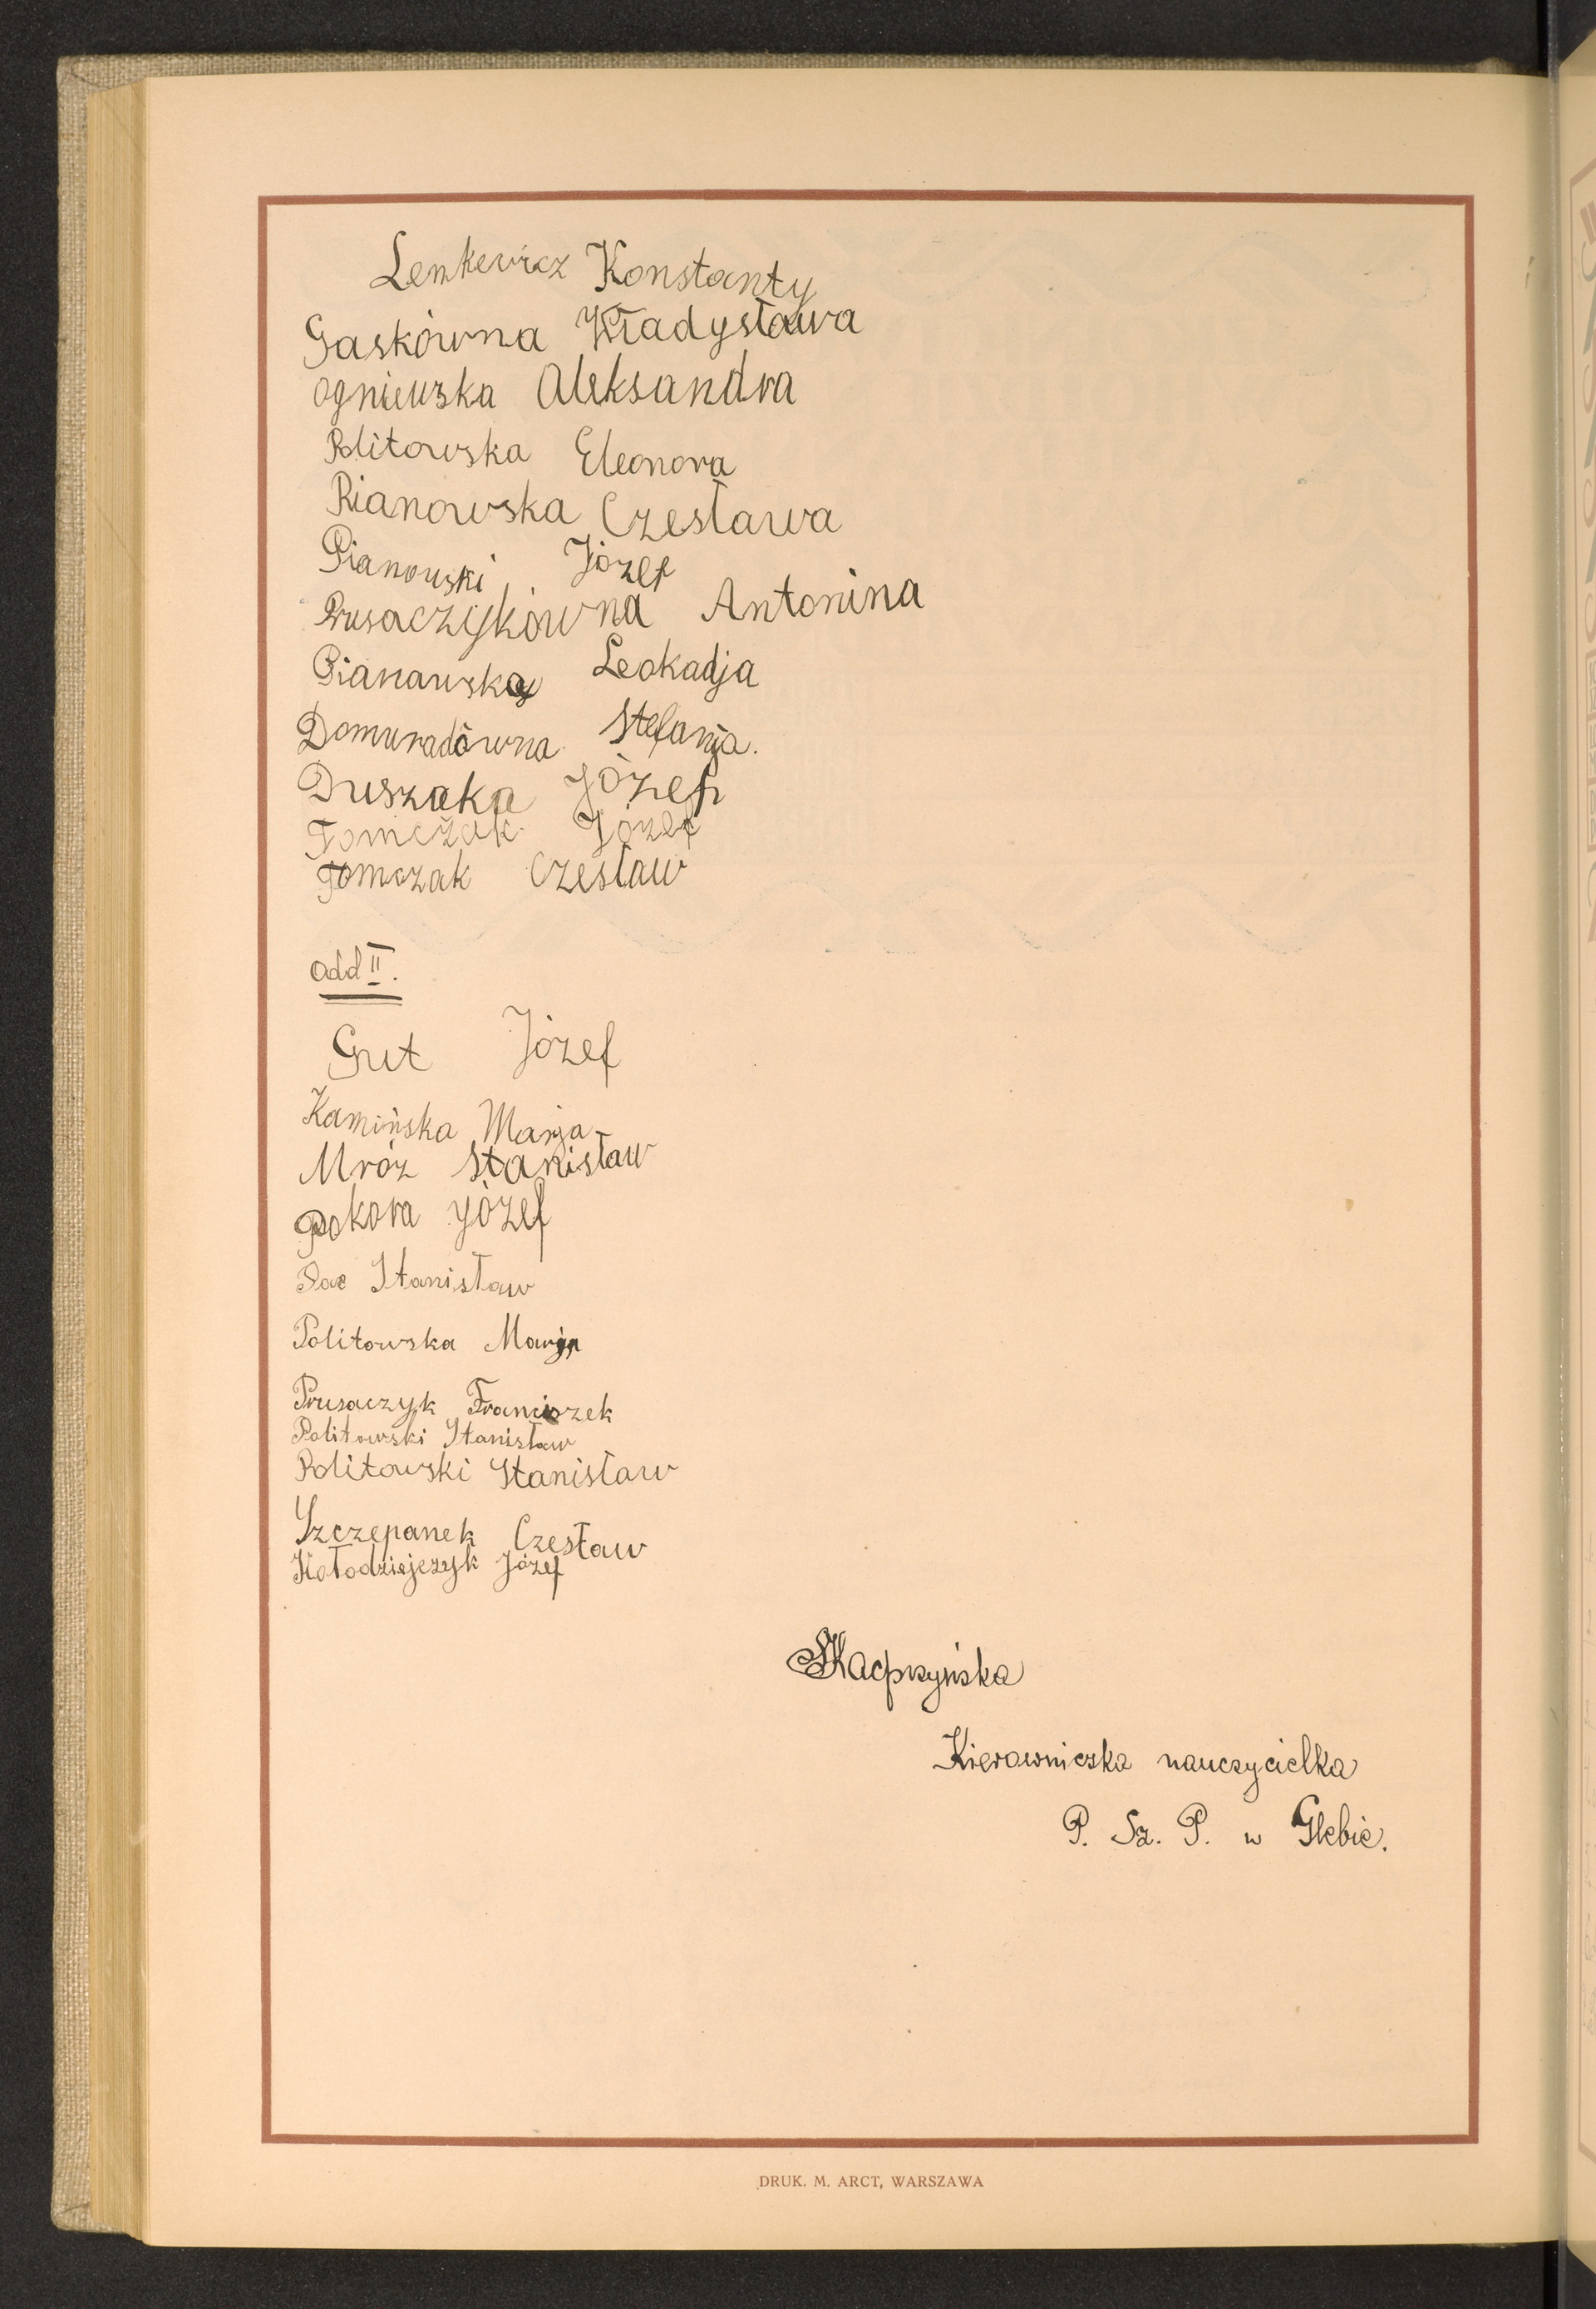 Lemkewicz Konstanty
Gaskówna Władysława
Ogniewska Aleksandra
Politowska Eleonora
Pianowska Czesława
Pianowski Józef
Prusaczykówna Antonina
Pianawska Leokadja
Domuradówna Stefanja.
Duszaka Józef
Tomczak Józef
Tomczak Czesław
Odd II.
Gut Józef
Kamińska Marja
Mróz Stanisław
Pokora Józef
Pac Stanisław
Politowska Marja
Prusaczyk Franciszek
Politowski Stanisław
Politowski Stanisław
Szczepanek Czesław
Kołodziejczyk Józef
SKacprzyńska
Kierowniczka nauczycielka
P. Sz. P. w Glebie.
DRUK. M. ARCT, WARSZAWA